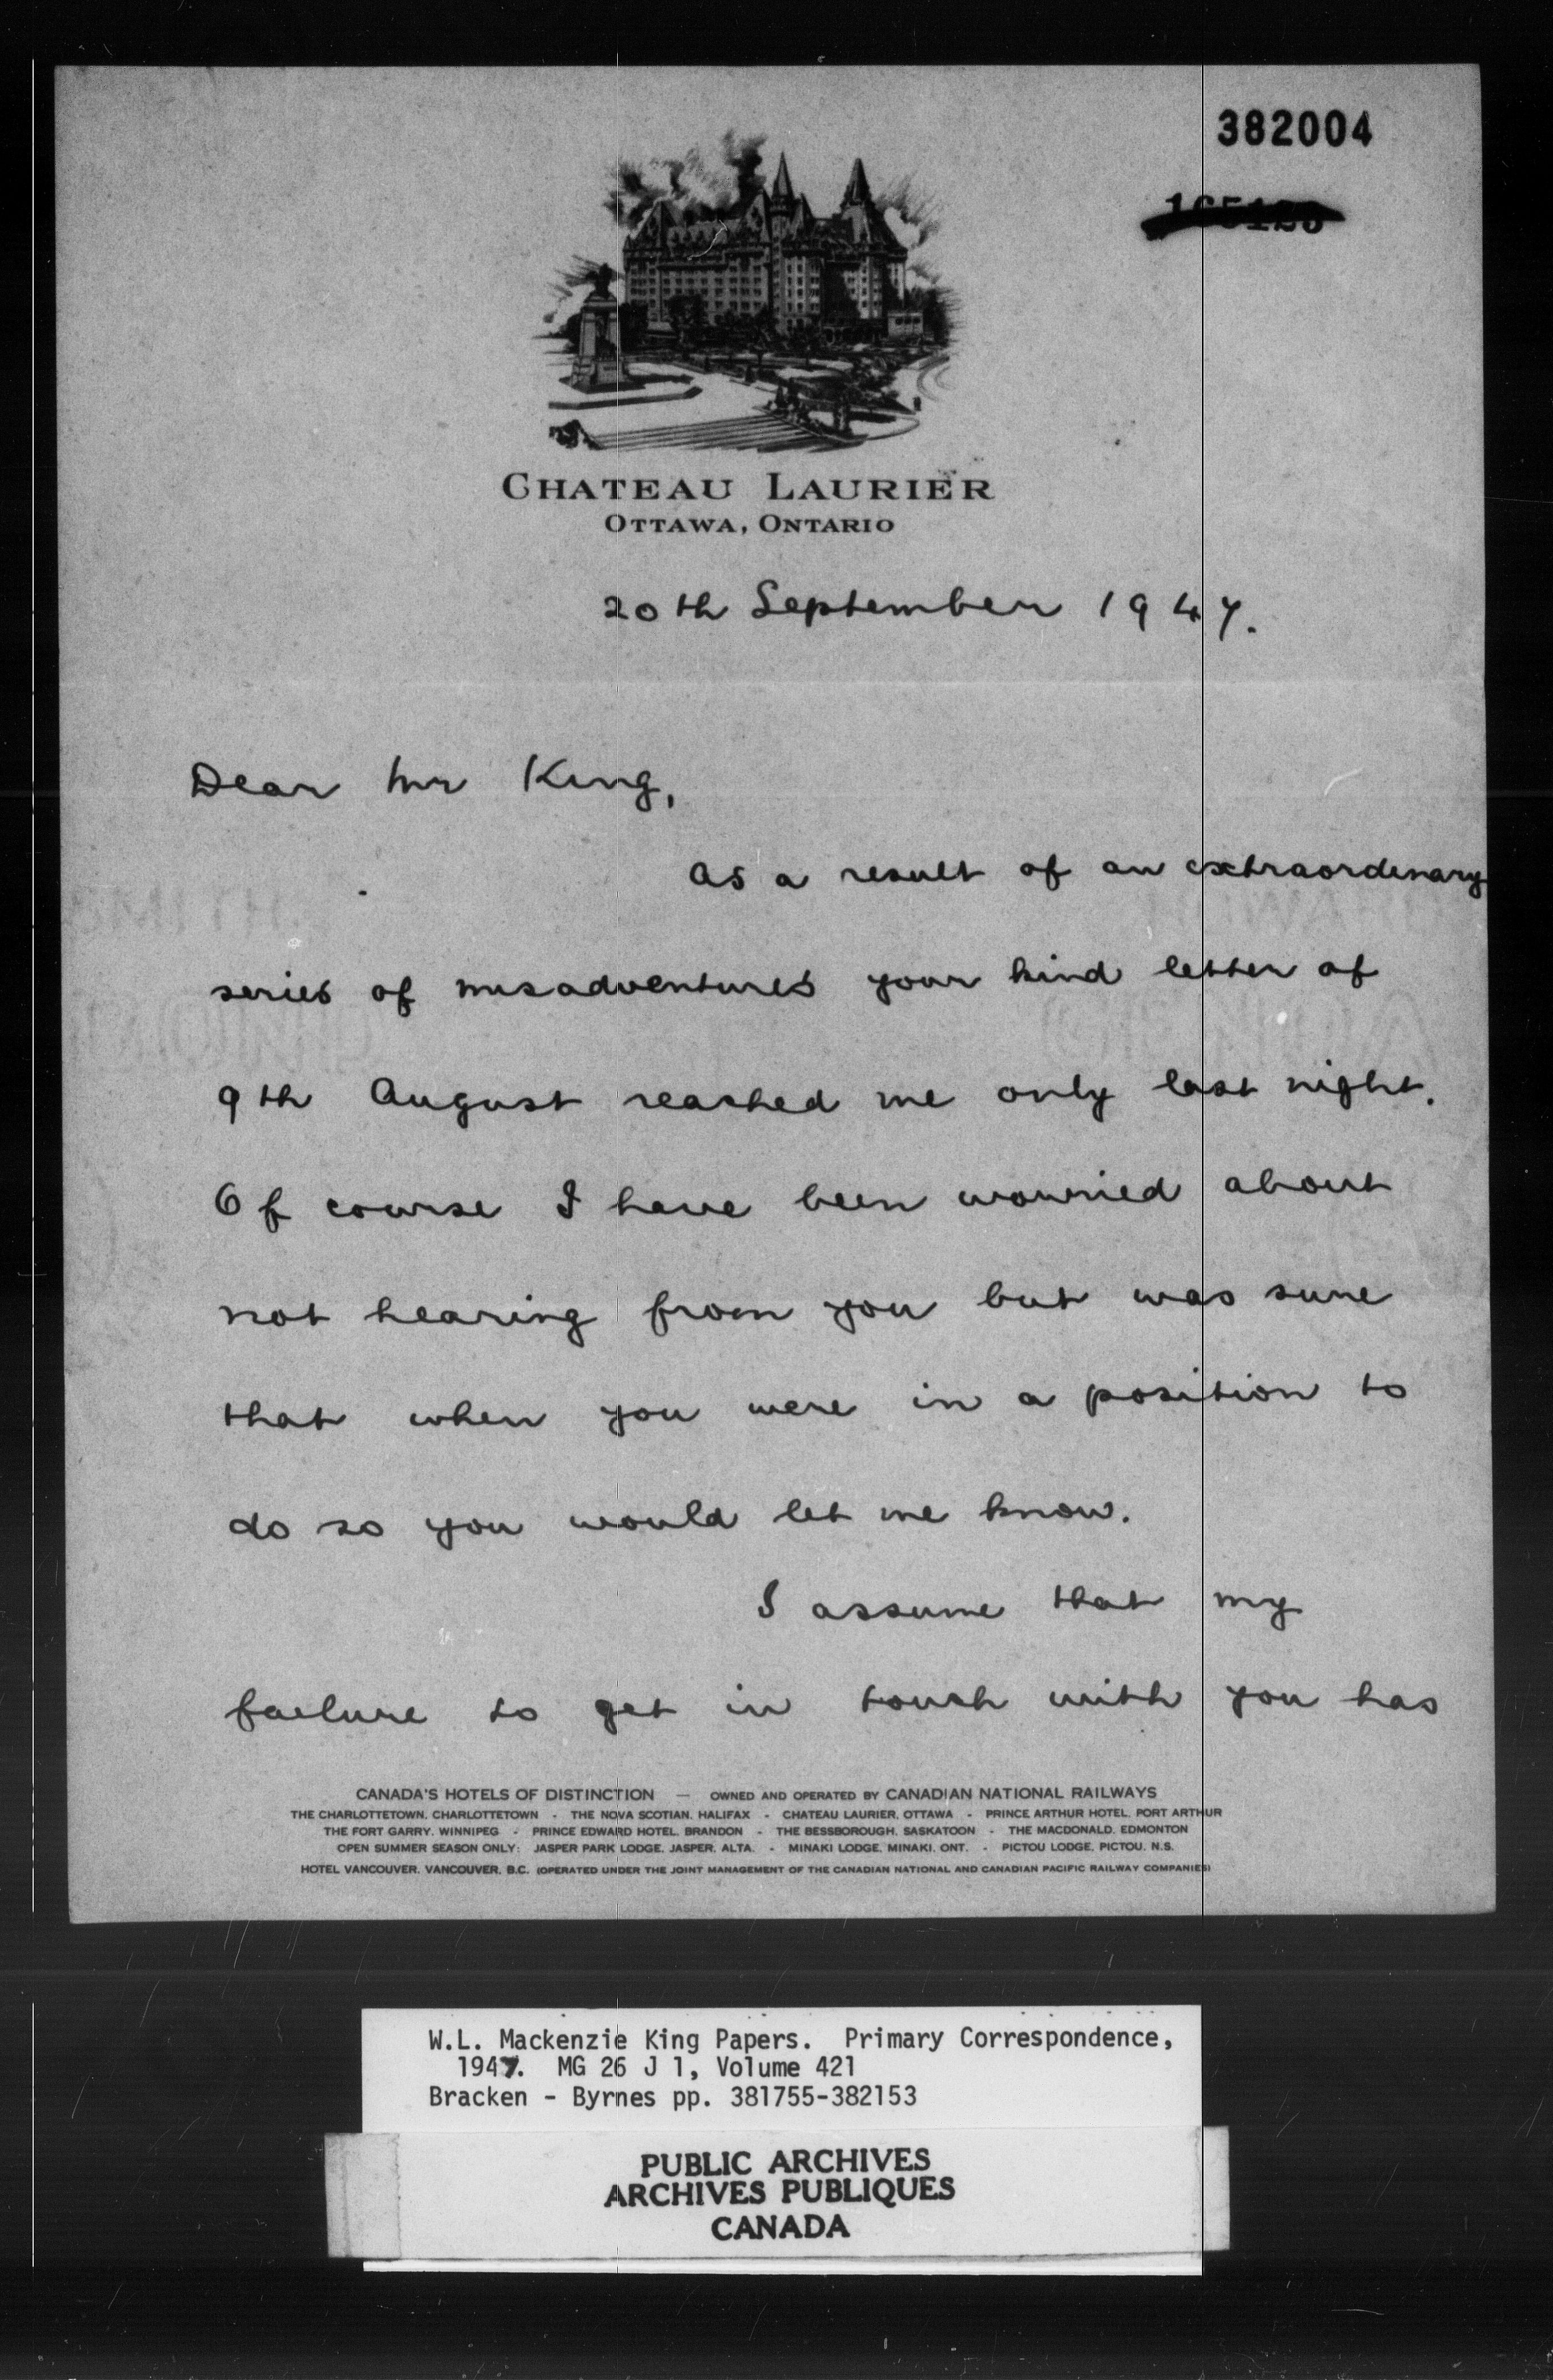 382004
CHATEAU LAURIER
OTTAWA, ONTARIO
20th September 1947.
Dear Mr King,
As a result of an extraordinary
series of misadventures your kind letter of
9th August reached me only last night.
Of course I have been worried about
not hearing from you but was sure
that when you were in a position to
do so you would let me know.
I assume that my
failure to get in touch with you has
CANADA'S HOTELS OF DISTINCTION — OWNED AND OPERATED BY CANADIAN NATIONAL RAILWAYS
THE CHARLOTTETOWN, CHARLOTTETOWN - THE NOVA SCOTIAN, HALIFAX - CHATEAU LAURIER, OTTAWA - PRINCE ARTHUR HOTEL, PORT ARTHUR
THE FORT GARRY, WINNIPEG - PRINCE EDWARD HOTEL, BRANDON - THE BESSBOROUGH, SASKATOON - THE MACDONALD, EDMONTON
OPEN SUMMER SEASON ONLY: JASPER PARK LODGE, JASPER, ALTA. - MINAKI LODGE, MINAKI, ONT. - PICTOU LODGE, PICTOU, N.S.
HOTEL VANCOUVER, VANCOUVER, B.C. (OPERATED UNDER THE JOINT MANAGEMENT OF THE CANADIAN NATIONAL AND CANADIAN PACIFIC RAILWAY COMPANIES)
W.L. Mackenzie King Papers. Primary Correspondence,
1947. MG 26 J 1, Volume 421
Bracken - Byrnes pp. 381755-382153
PUBLIC ARCHIVES
ARCHIVES PUBLIQUES
CANADA